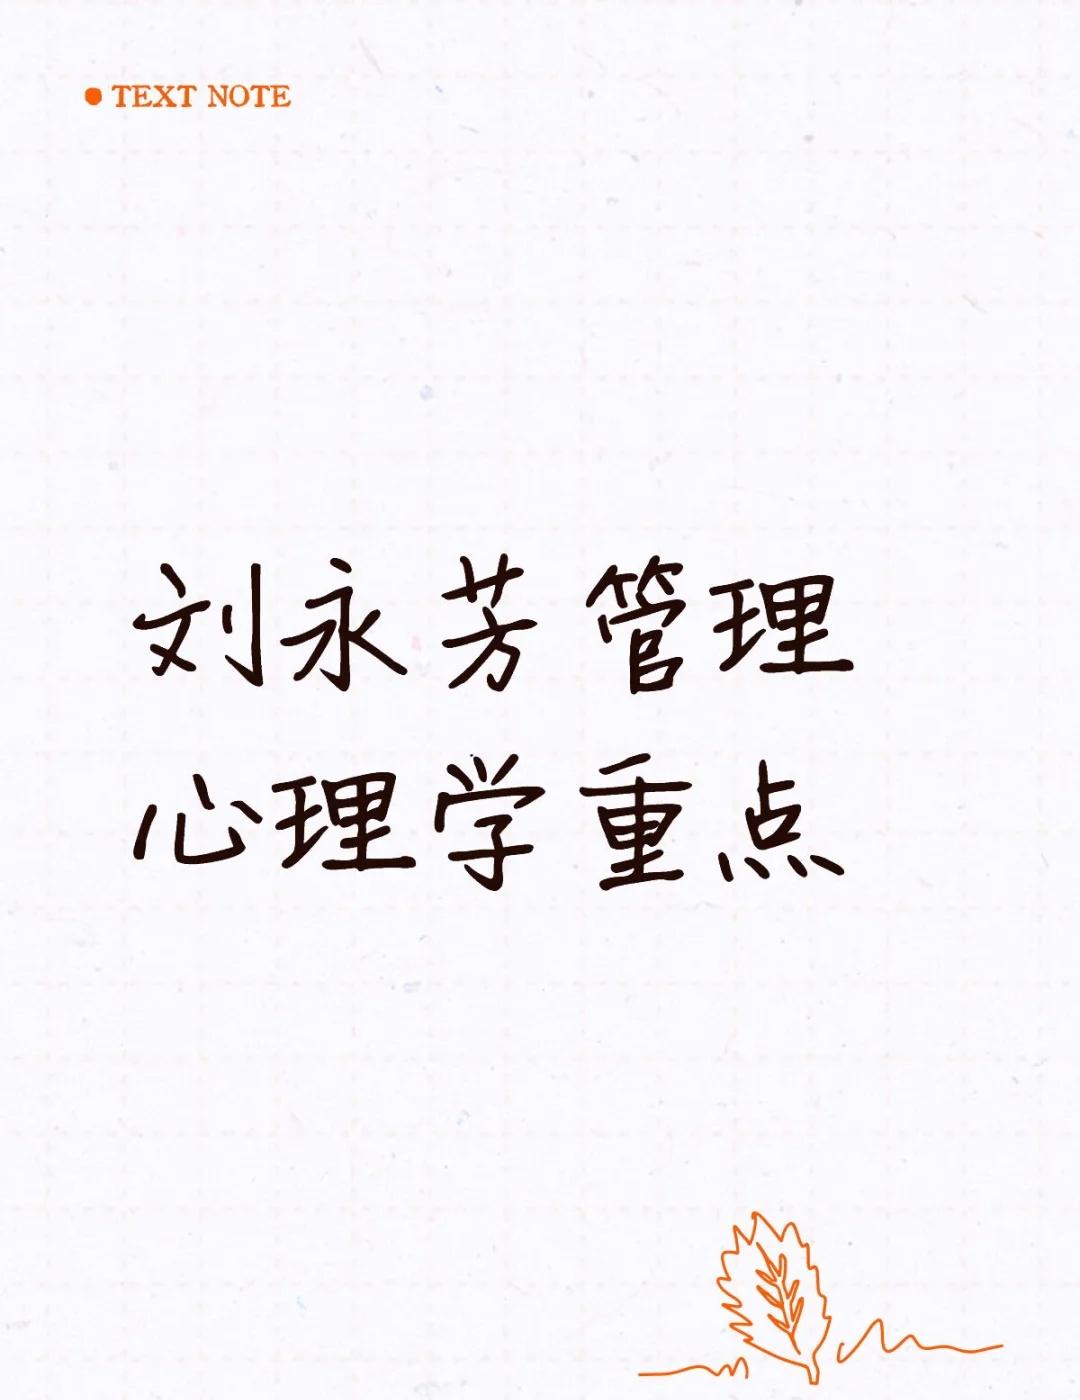 TEXT NOTE
刘永芳管理
心理学重点